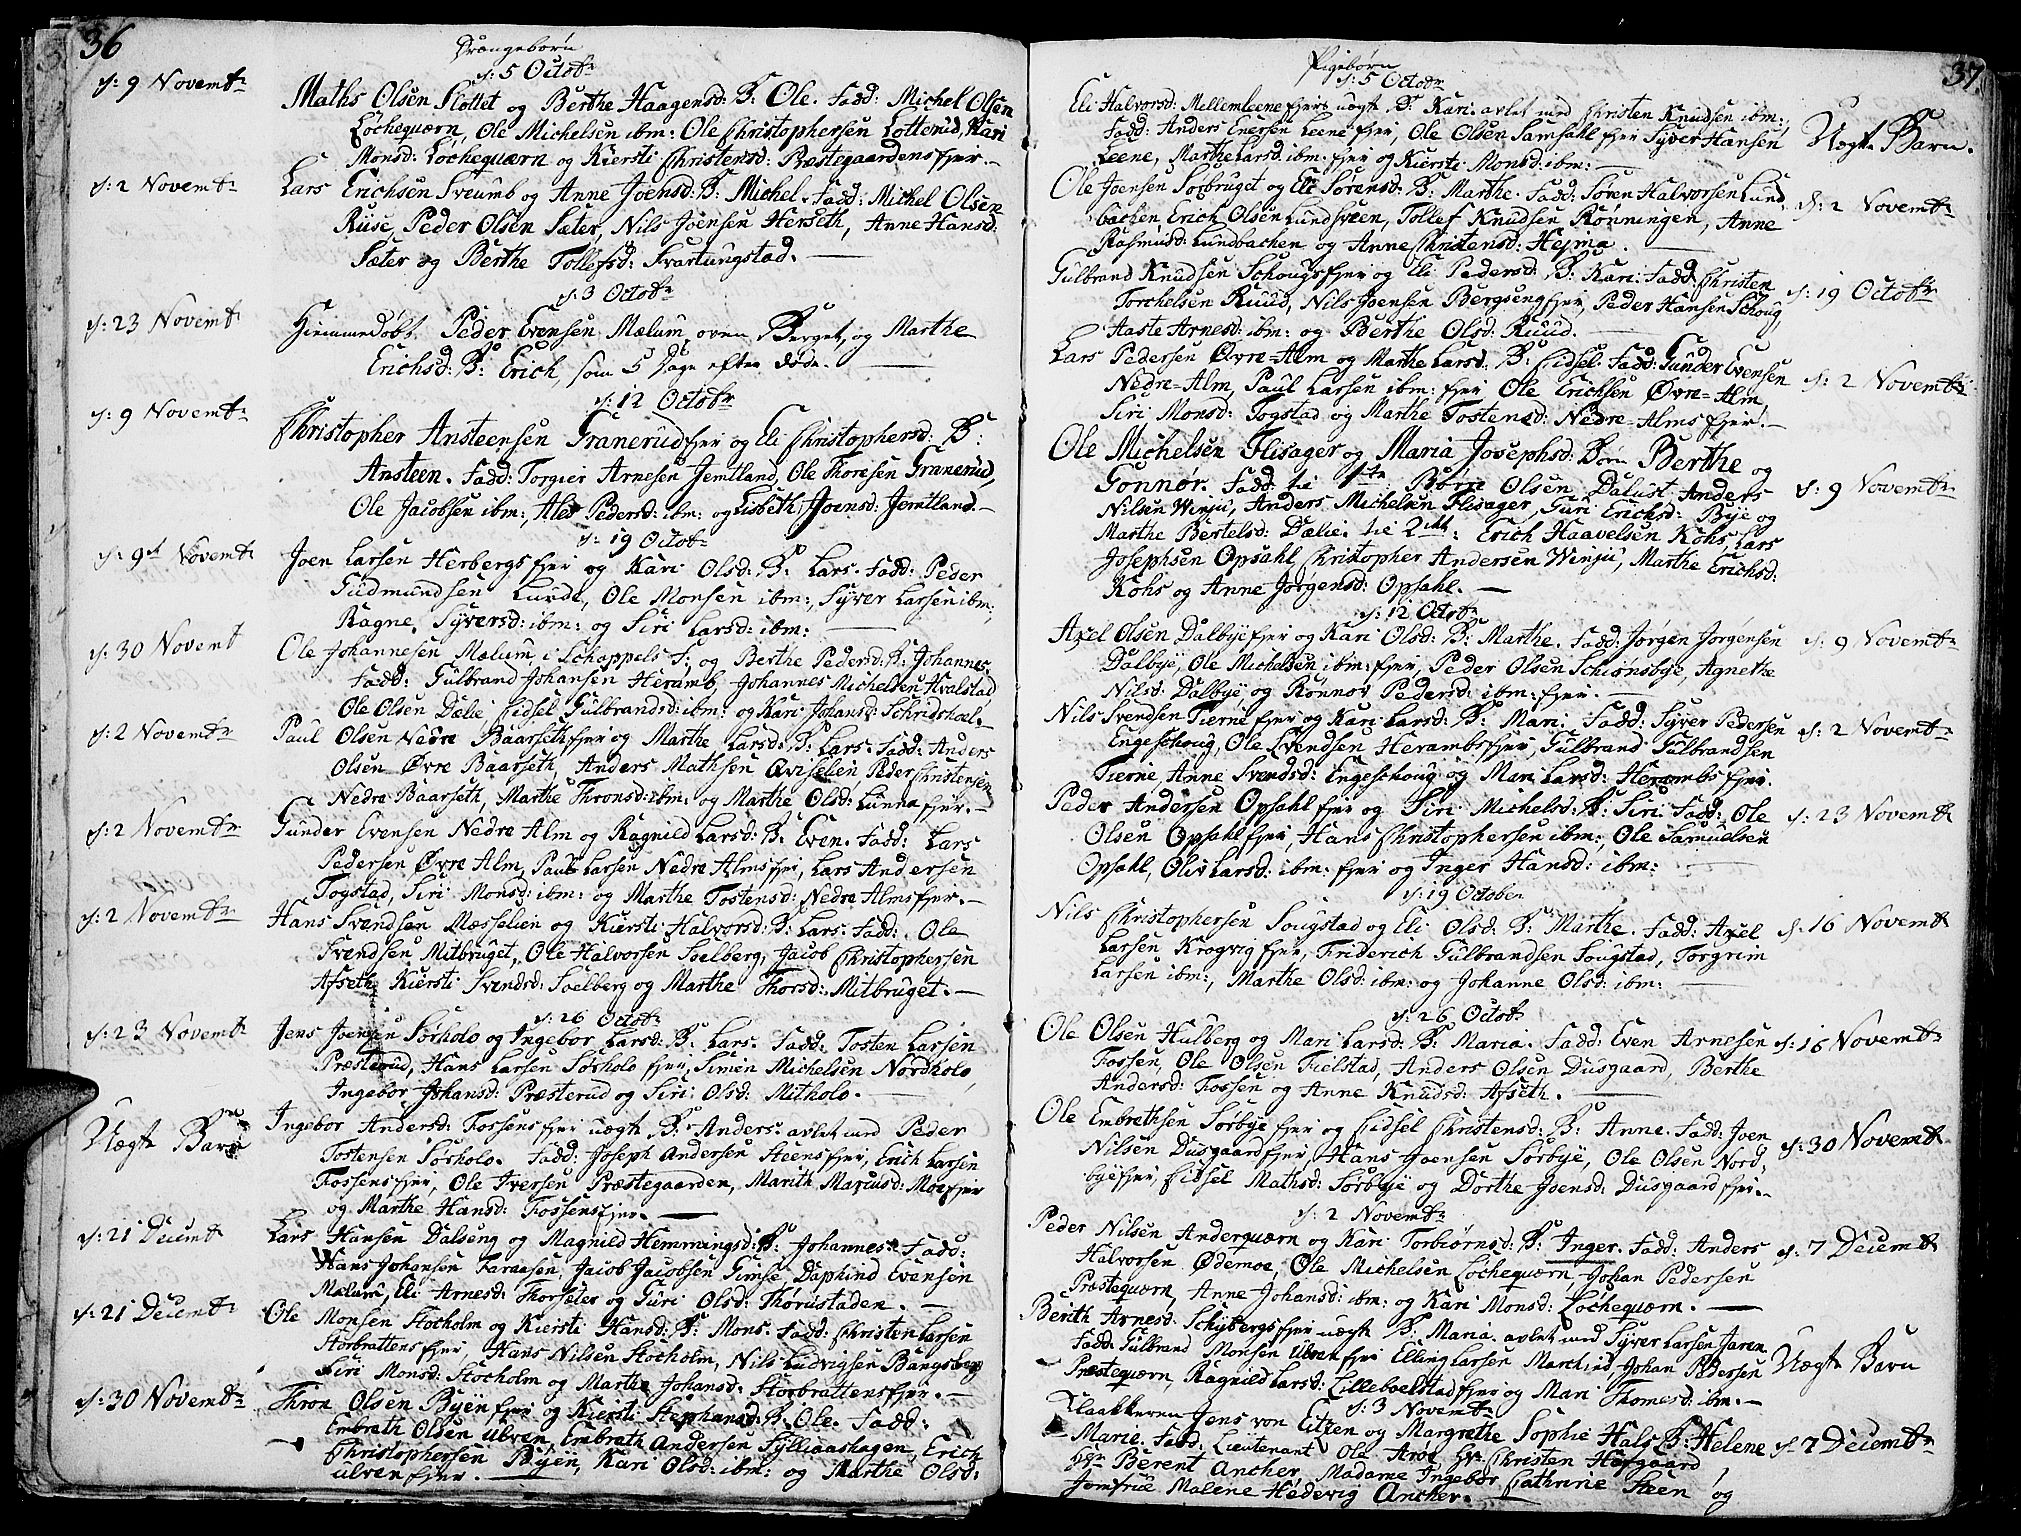 36
Drängebørn
d: 5 Octobr
d: 9 Novembr
Maths Olsen Slottet og Berthe Haagensd: B: Ole. Fadd: Michel Olsen
Løcheqværn, Ole Michelsen ibm: Ole Christophersen Lotterud, Kari
Monsd: Løcheqværn og Kiersti Christensd: Præstegaardens fier.
d: 2 Novembr
Lars Erichsen Sveumb og Anne Joensd: B: Michel. Fadd: Michel Olsen
Ruse, Peder Olsen Sæter, Nils Joensen Herseth, Anne Hansd:
Sæter og Berthe Tollefsd: Svartungstad.
d: 3 Octobr
d: 23 Novembr
Hiemmedøbt Peder Evensen Mælum oven Berget, og Marthe
Erichsd: B: Erich, som 5 Dage efter døde.
d: 12 Octobr
d: 9 Novembr
Christopher Ansteensen Granerud fier og Eli Christophersd: B:
Ansteen. Fadd: Torgier Arnesen Jemtland, Ole Thoresen Granerud,
Ole Jacobsen ibm:, Ales Pedersd: ibm: og Lisbeth Joensd: Jemtland.
d: 19 Octobr
d: 9de Novembr
Joen Larsen Herbergs fier og Kari Olsd: B: Lars. Fadd: Peder
Gudmundsen Lunde, Ole Monsen ibm:, Syver Larsen ibm:,
Ragne Syversd: ibm: og Siri Larsd: ibm:
d: 30 Novembr
Ole Johannesen Mælum, i Schappels S: og Berthe Pedersd: B: Johannes
Fadd: Gulbrand Johansen Heramb, Johannes Michelsen Hvalstad
Ole Olsen Dælie Eidsel Gulbrandsd: ibm: og Kari Johansd: Schridshoel.
d: 2 Novembr
Paul Olsen Nedre Baarseth fier og Marthe Larsd: B: Lars. Fadd: Anders
Olsen Øvre Baarseth, Anders Mathsen Qviselien Peder Christensen
Nedre Baarseth, Marthe Thronsd: ibm: og Marthe Olsd: Lunna fier.
d: 2 Novembr
Gunder Evensen Nedre Alm og Ragnild Larsd: B: Even. Fadd: Lars
Pedersen Øvre Alm, Paul Larsen Nedre Alms fier, Lars Andersen
Togstad, Siri Monsd: ibm: og Marthe Tostensd: Nedre Alms fier.
d: 2 Novembr
Hans Svendsen Mæsselien og Kiersti Halvorsd: B: Lars. Fadd: Ole
Svendsen Mitbruget, Ole Halvorsen Soelberg, Jacob Christophersen
Afseth Kiersti Svendsd: Soelberg og Marthe Thorsd: Mitbruget.
d: 26 Octobr
d: 23 Novembr
Jens Joensen Sørholo og Ingebor Larsd: B: Lars. Fadd: Tosten Larsen
Præsterud, Hans Larsen Sørholo fier, Simen Michelsen Nordholo,
Ingebor Johansd: Præsterud og Siri Olsd: Mitholo.
Uægte Barn
Ingebor Andersd: Fossens fier uægte B: Anders. avlet med Peder
Tostensen Sørholo. Fadd: Joseph Andersen Steens fier, Erich Larsen
Fossens fier, Ole Iversen Præstegaarden, Marith Mariusd: Moe fier
og Marthe Hansd: Fossens fier.
d: 21 Decembr
Lars Hansen Dalseng og Magnild Hemmingsd: B: Johannes. Fadd:
Hans Johansen Faraasen, Jacob Jacobsen Gimse, Daphind Evensen
Mælum, Eli Arnesd: Thorsæter og Guri Olsd: Thorustaden.
d: 21 Decembr
Ole Monsen Stocholm og Kiersti Hansd: B: Mons. Fadd: Christen Larsen
Storbrattens fier, Hans Nilsen Stocholm, Nils Ludvigsen Bangsberg
Siri Monsd: Stocholm og Marthe Johansd: Storbrattens fier.
d: 30 Novembr
Thron Olsen Byen fier og Kiersti Stephansd: B: Ole. Fadd:
Embreth Olsen Ulven, Embreth Andersen Sylliaashagen, Erich
Christophersen Byen, Kari Olsd: ibm: og Marthe Olsd:
Ulven fier.
37.
Pigebørn
d: 5 Octobr
Eli Halvorsd: Mellem Leene fiers uægte B: Kari. avlet med Christen Knudsen ibm:,
Fadd: Anders Enersen Leene fier, Ole Olsen Samsahl fier Syver Hansen
Leene, Marthe Larsd: ibm: fier og Kiersti Monsd: ibm:
Uægte Barn.
Ole Joensen Sorbruget og Eli Sørensd: B: Marthe. Fadd: Søren Halvorsen Lund
bachen, Erich Olsen Lundsveen, Tollef Knudsen Rønningen, Anne
Rasmusd: Lundbachen og Anne Christensd: Hejma.
d: 2 Novembr
Gulbrand Knudsen Schougs fier og Eli Pedersd: B: Kari. Fadd: Christen
Torchelsen Ruud, Nils Joensen Bergseng fier, Peder Hansen Schoug,
Aaste Arnesd: ibm: og Berthe Olsd: Ruud.
d: 19 Octobr
Lars Pedersen Øvre=Alm og Marthe Larsd: B: Eidsel. Fadd: Gunder Evensen
Nedre-Alm, Paul Larsen ibm: fier Ole Erichsen Øvre=Alm
Siri Monsd: Togstad og Marthe Tostensd: Nedre-Alms fier.
d: 2 Novembr
Ole Michelsen Flisager og Maria Josephsd: Børn Berthe og
Gonnor. Fadd: til 1ste: Børre Olsen Dalust, Anders
Nilsen Winju, Anders Michelsen Flisager, Guri Erichsd: Bye og
Marthe Bertelsd: Dælie. til 2det: Erich Haavelsen Kohs, Lars
Josephsen Opsahl, Christopher Andersen Winju, Marthe Erichsd:
Kohs og Anne Jørgensd: Opsahl.
d: 9 Novembr
d: 12 Octobr
Axel Olsen Dalbye fier og Kari Olsd: B: Marthe. Fadd: Jørgen Jørgensen
Dalbye, Ole Michelsen ibm: fier, Peder Olsen Schiønsbye, Agnethe
Nilsd: Dalbye og Rønnov Pedersd: ibm: fier.
d: 9 Novembr
Nils Svendsen Tierne fier og Kari Larsd: B: Mari. Fadd: Syver Pedersen
Engeschoug, Ole Svendsen Herambs fier, Gulbrand Gulbrandsen
Tierne Anne Svendsd: Engeschoug og Mari Larsd: Herambs fier.
d: 2 Novembr
Peder Andersen Opsahl fier og Siri Michelsd: B: Siri. Fadd: Ole
Olsen Opsahl fier, Hans Christophersen ibm:, Ole Samuelsen
Opsahl, Oliv Larsd: ibm: fier og Inger Hansd: ibm:
d: 23 Novembr
d: 19 October
Nils Christophersen Sougstad og Eli Olsd: B: Marthe. Fadd: Axel
Larsen Krogvig fier, Friderich Gulbrandsen Sougstad, Torgrim
Larsen ibm:, Marthe Olsd: ibm: og Johanne Olsd: ibm:
d: 16 Novembr
d: 26 Octobr
Ole Olsen Hulberg og Mari Larsd: B: Maria. Fadd: Even Arnesen
Fossen, Ole Olsen Fielstad, Anders Olsen Dusgaard, Berthe
Andersd: Fossen og Anne Knudsd: Afseth.
d: 16 Novembr
Ole Embrethsen Sørbye fier og Eidsel Christensd: B: Anne. Fadd: Joen
Nilsen Dusgaard fier, Hans Joensen Sørbye, Ole Olsen Nord,
bye fier, Eidsel Mathsd: Sørbye og Dorthe Joensd: Dusgaard fier.
d: 30 Novembr
d: 2 Novembr
Peder Nilsen Anderqværn og Kari Torbiørnsd: B: Inger. Fadd: Anders
Halvorsen Ødemoe, Ole Michelsen Løcheqværn, Johan Pedersen
Præsteqværn, Anne Johansd: ibm: og Kari Monsd: Løcheqværn.
d: 7 Decembr
Berith Arnesd: Schybergs fier uægte B: Maria. avlet med Syver Larsen Jaren
Fadd: Gulbrand Monsen Ulven fier Elling Larsen Marchud, Johan Pedersen
Præsteqværn, Ragnild Larsd: Lilleboelstad fier og Mari Thomesd: ibm.
Uægte Barn
d: 3 Novembr
Klaakkeren Jens von Eitzen og Margrethe Sophie Hals B: Helene
Marie. Fadd: Lieutenant Ole Aroe Hr: Christen Hofgaard
Hr Berent Ancher, Madame Ingebor Cathrine Steen og
Jomfrue Malene Hedevig Ancher.
d: 7 Decembr